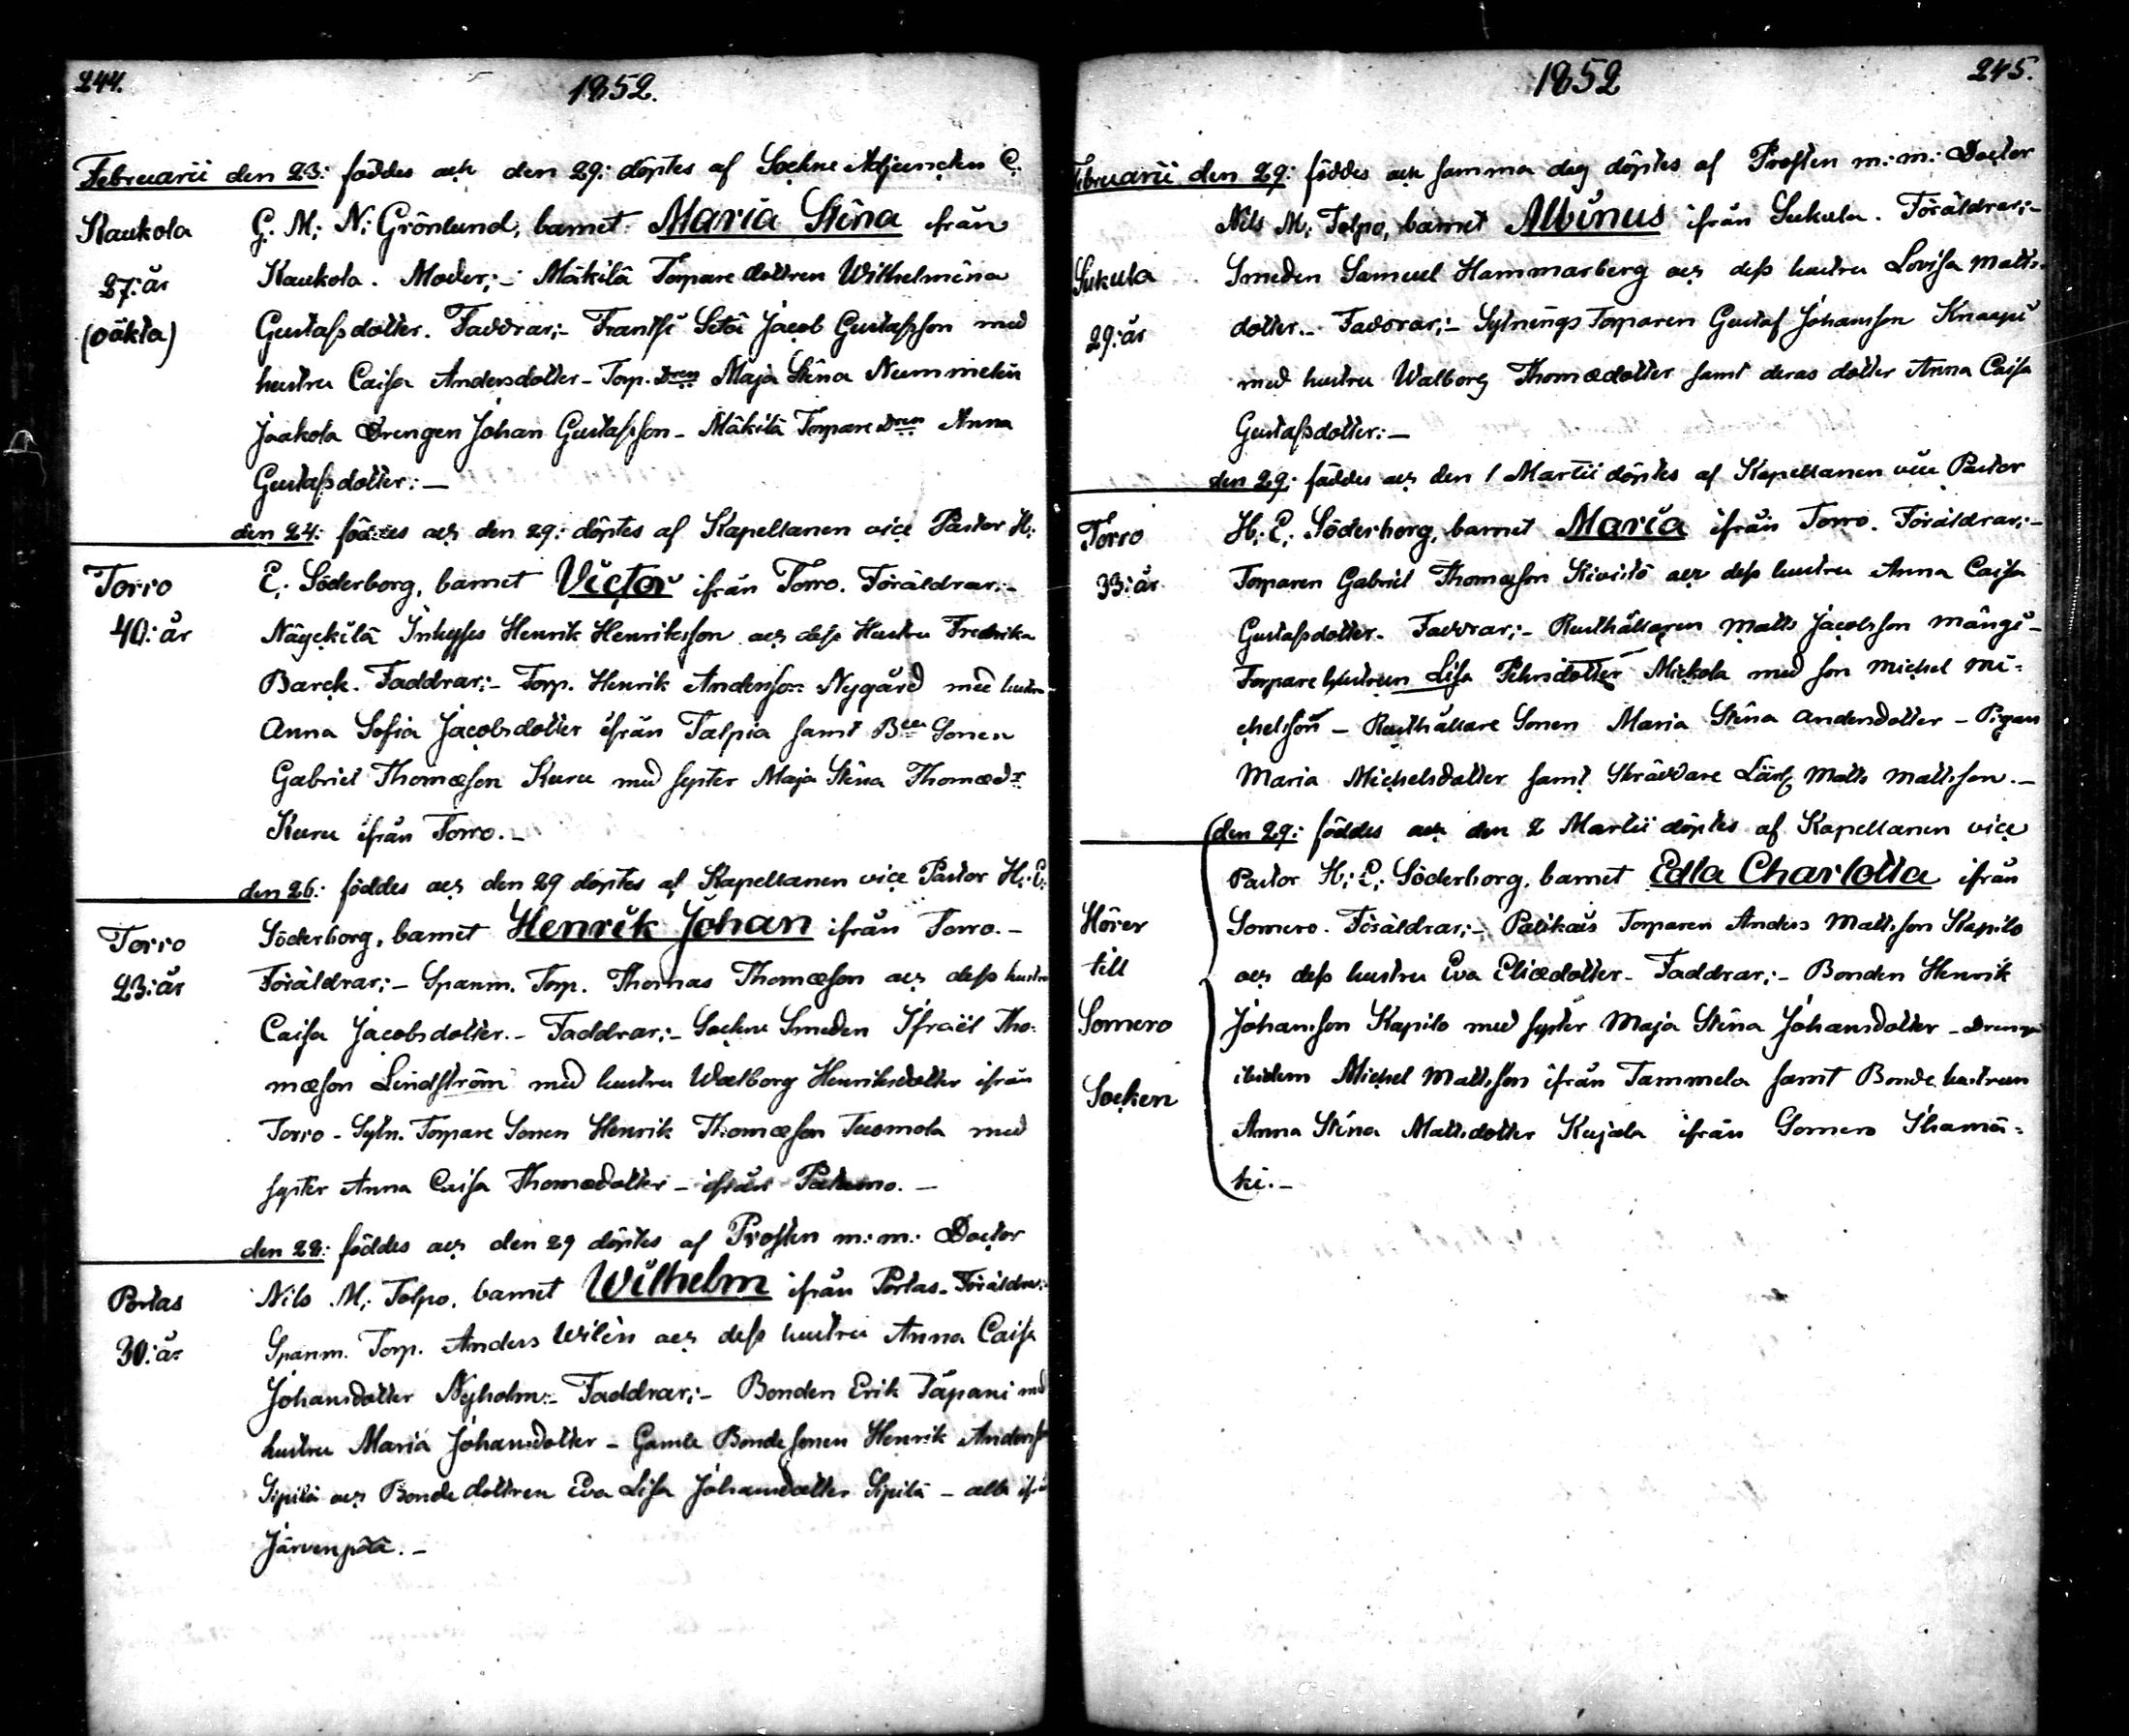 244.
1852.
Februarii den 23: föddes och den 29: döptes af Sockne Adjuncten C.
Kaukola
G. M: N: Grönlund, barnet: Maria Stina ifrån
27: år
Kaukola. Moder:- Mäkilä Torpare dottren Wilhelmina
(oäkta)
Gustafsdotter. Faddrar:- Frantsi Setä Jacob Gustafsson med
hustru Caisa Andersdotter - Torp. Dren Maja Stina Nummelin
Jaakola Drengen Johan Gustafsson - Mäkilä Torpare Dren Anna
Gustafsdotter:-
den 24: föddes och den 29: döptes af Kapellanen vice Pastor H:
Torro
E: Söderborg, barnet Victor ifrån Torro. Föräldrar:-
40: år
Inhyses Henrik Henriksson och dess Hustru Fredrika
Barck. Faddrar:- Torp. Henrik Andersson Nygård med hustru
Anna Sofia Jacobsdotter ifrån Talpia samt Bde Sonen
Gabriel Thomæson Kuru med syster Maja Stina Thomædr
Kuru ifrån Torro.-
den 26: föddes och den 29 döptes af Kapellanen vice Pastor H: E:
Torro
Söderborg, barnet Henrik Johan ifrån Torro.-
23: år
Föräldrar:- Spanm. Torp. Thomas Thomæson och dess hustru
Caisa Jacobsdotter.- Faddrar:- Sockne Smeden Israël Tho-
mæson Lindström med hustru Walborg Henriksdotter ifrån
Torro - Sytn. Torpare Sonen Henrik Thomæson Tuomola med
syster Anna Caisa Thomædotter - ifrån
den 28: föddes och den 29 döptes af Prosten m: m: Doctor
Portas
Nils M: Tolpo, barnet Wilhelm ifrån Portas. Föräldrar:
30: år
Spanm. Torp. Anders Wilén och dess hustru Anna Caisa
Johansdotter Nyholm:- Faddrar:- Bonden Erik Tapani med
hustru Maria Johansdotter - Gamle Bonde sonen Henrik Andersson
Sipilä och Bonde dottren Eva Lisa Johansdotter Sipilä - alla ifrån
Järvenpää.-
1852
245.
Februarii den 29: föddes och samma dag döptes af Prosten m: m: Doctor
Nils M: Tolpo, barnet Albinus ifrån Sukula. Föräldrar:-
Sukula
Smeden Samuel Hammarberg och dess hustru Lovisa Matts-
29: år
dotter.- Faddrar:- Sytnings Torparen Gustaf Johansson Knaapi
med hustru Walborg Thomædotter samt deras dotter Anna Caisa
Gustafsdotter:-
den 29: föddes och den 1 Martii döptes af Kapellanen vice Pastor
Torro
H: E: Söderborg, barnet Maria ifrån Torro. Föräldrar:-
33: år
Torparen Gabriel Thomasson Kivistö och dess hustru Anna Caisa
Gustafsdotter. Faddrar:- Rusthållaren Matts Jacobsson Mängi-
Torpare hustrun Lisa Mickola med son Michel Mi-
chelsson - Rusthållare Sonen Maria Stina Andersdotter - Pigan
Maria Michelsdotter samt Skräddare Lärl. Matts Mattsson.-
den 29: föddes och den 2 Martii döptes af Kapellanen vice
Pastor H: E: Söderborg, barnet Edla Charlotta ifrån
Hörer
Somero. Föräldrar:- Palikais Torparen Anders Mattsson Kapilo
till
och dess hustru Eva Eliædotter - Faddrar:- Bonden Henrik
Somero
Johansson Kapilo med syster Maja Stina Johansdotter - Drengen
Socken
ibidem Michel Mattsson ifrån Tammela samt Bonde hustrun
Anna Stina Mattsdotter Kujala ifrån Somero Ihamä-
ki.-